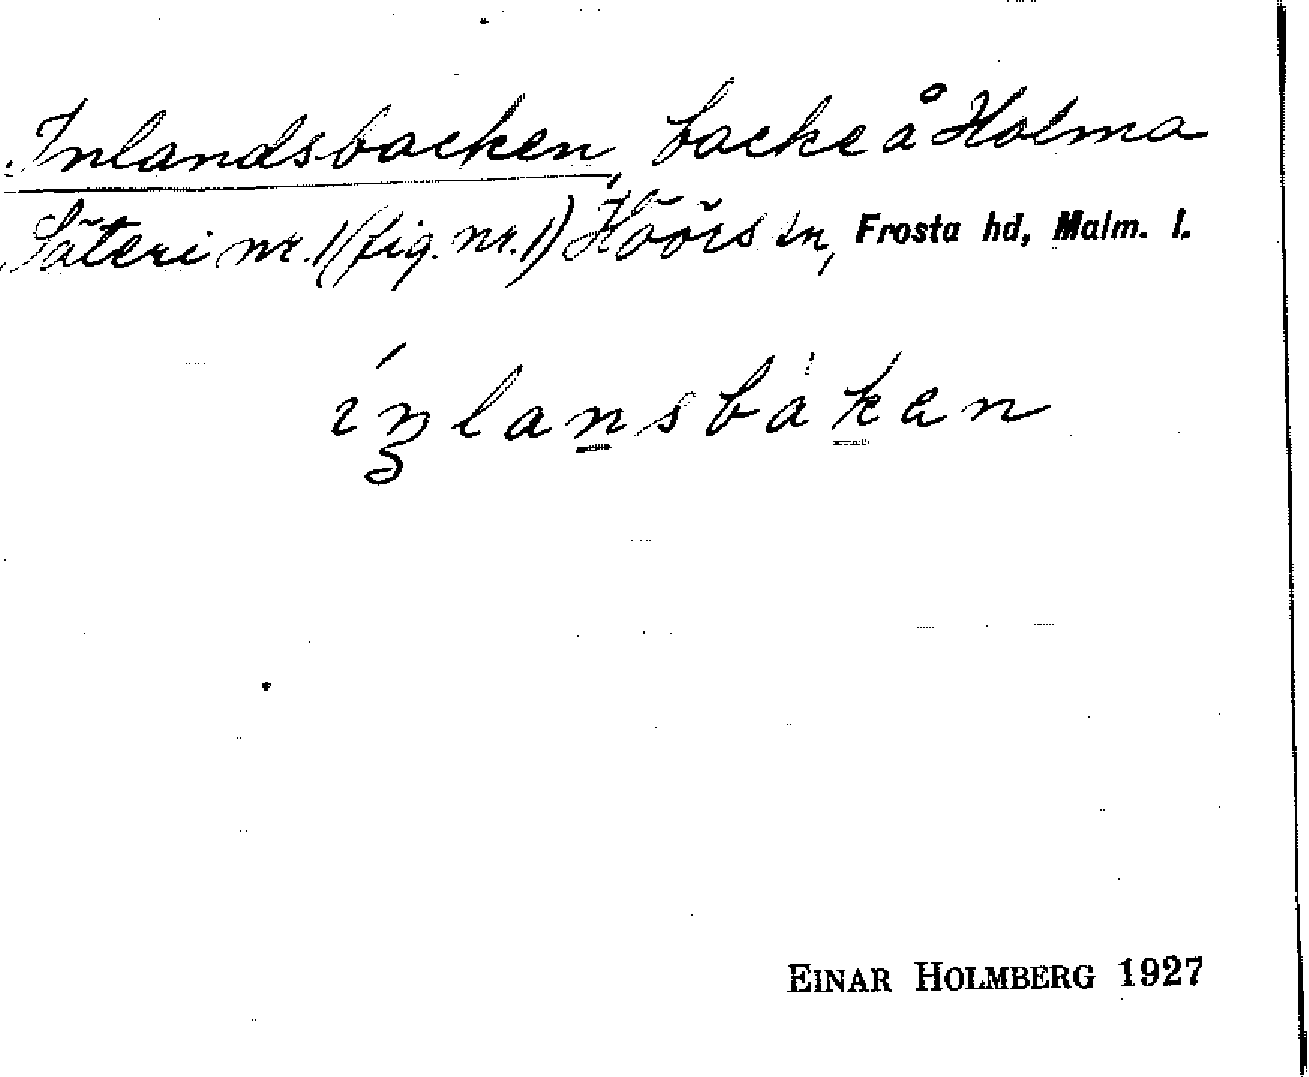 Inlandsbacken, backe å Holma
Säteri nr. 1 (fig. nr. 1) Höörs sn, Frosta hd, Malm. l.
ínlansbakan
EINAR HOLMBERG 1927